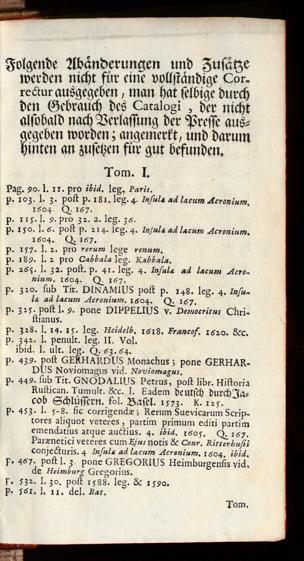 Folgende Abänderungen und Zusätze
werden nicht für eine vollständige Cor-
rectur ausgegeben, man hat selbige durch
den Gebrauch des Catalogi, der nicht
alsobald nach Verlassung der Presse aus-
gegeben worden; angemerkt, und darum
hinten an zusetzen für gut befunden.
Tom. I.
Pag. 90. l. 11. pro ibid. leg. Paris.
p. 103. l. 3. post p. 181. leg. 4. Insulæ ad lacum Acronium.
1604 Q. 167.
p. 115. l. 9. pro 32. a. leg. 36.
p. 150. l. 6. post p. 214. leg. 4. Insulæ ad lacum Acronium.
1604. Q. 167.
p. 157. l. 2. pro rerum lege renum.
p. 189. l. 2 pro Cabbala leg. Kabbala.
p. 265. l. 32. post. p. 41. leg. 4. Insulæ ad lacum Acro-
nium. 1604. Q. 167.
p. 320. sub Tit. DINAMIUS post p. 148. leg. 4. Insu-
læ ad lacum Acronium. 1604. Q. 167.
p. 325. post l. 9. pone DIPPELIUS v. Democritus Chri-
stianus.
p. 328. l. 14. 15. leg. Heidelb. 1618. Francof. 1620. &c.
p. 342. l. penult. leg. II. Vol.
ibid. l. ult. leg. Q. 63. 64.
p. 439. post GERHARDUS Monachus; pone GERHAR-
DUS Noviomagus vid. Noviomagus.
p. 449. sub Tit. GNODALIUS Petrus, post libr. Historia
Rustican. Tumult. &c. l. Eadem deutsch durch Ja-
cob Schlüssern. fol. Basel. 1573. K. 125.
p. 453. l. 5-8. sic corrigendæ; Rerum Suevicarum Scrip-
tores aliquot veteres, partim primum editi partim
emendatius atque auctius. 4. ibid. 1605. Q. 167.
Parænetici veteres cum Ejus notis & Conr. Rittershusii
conjecturis. 4 Insulæ ad lacum Acronium. 1604. ibid.
p. 467. post l. 3. pone GREGORIUS Heimburgensis vid.
de Heimburg Gregorius.
p. 532. l. 30. post 1588. leg. & 1590.
p. 561. l. 11. del. Bas.
Tom.